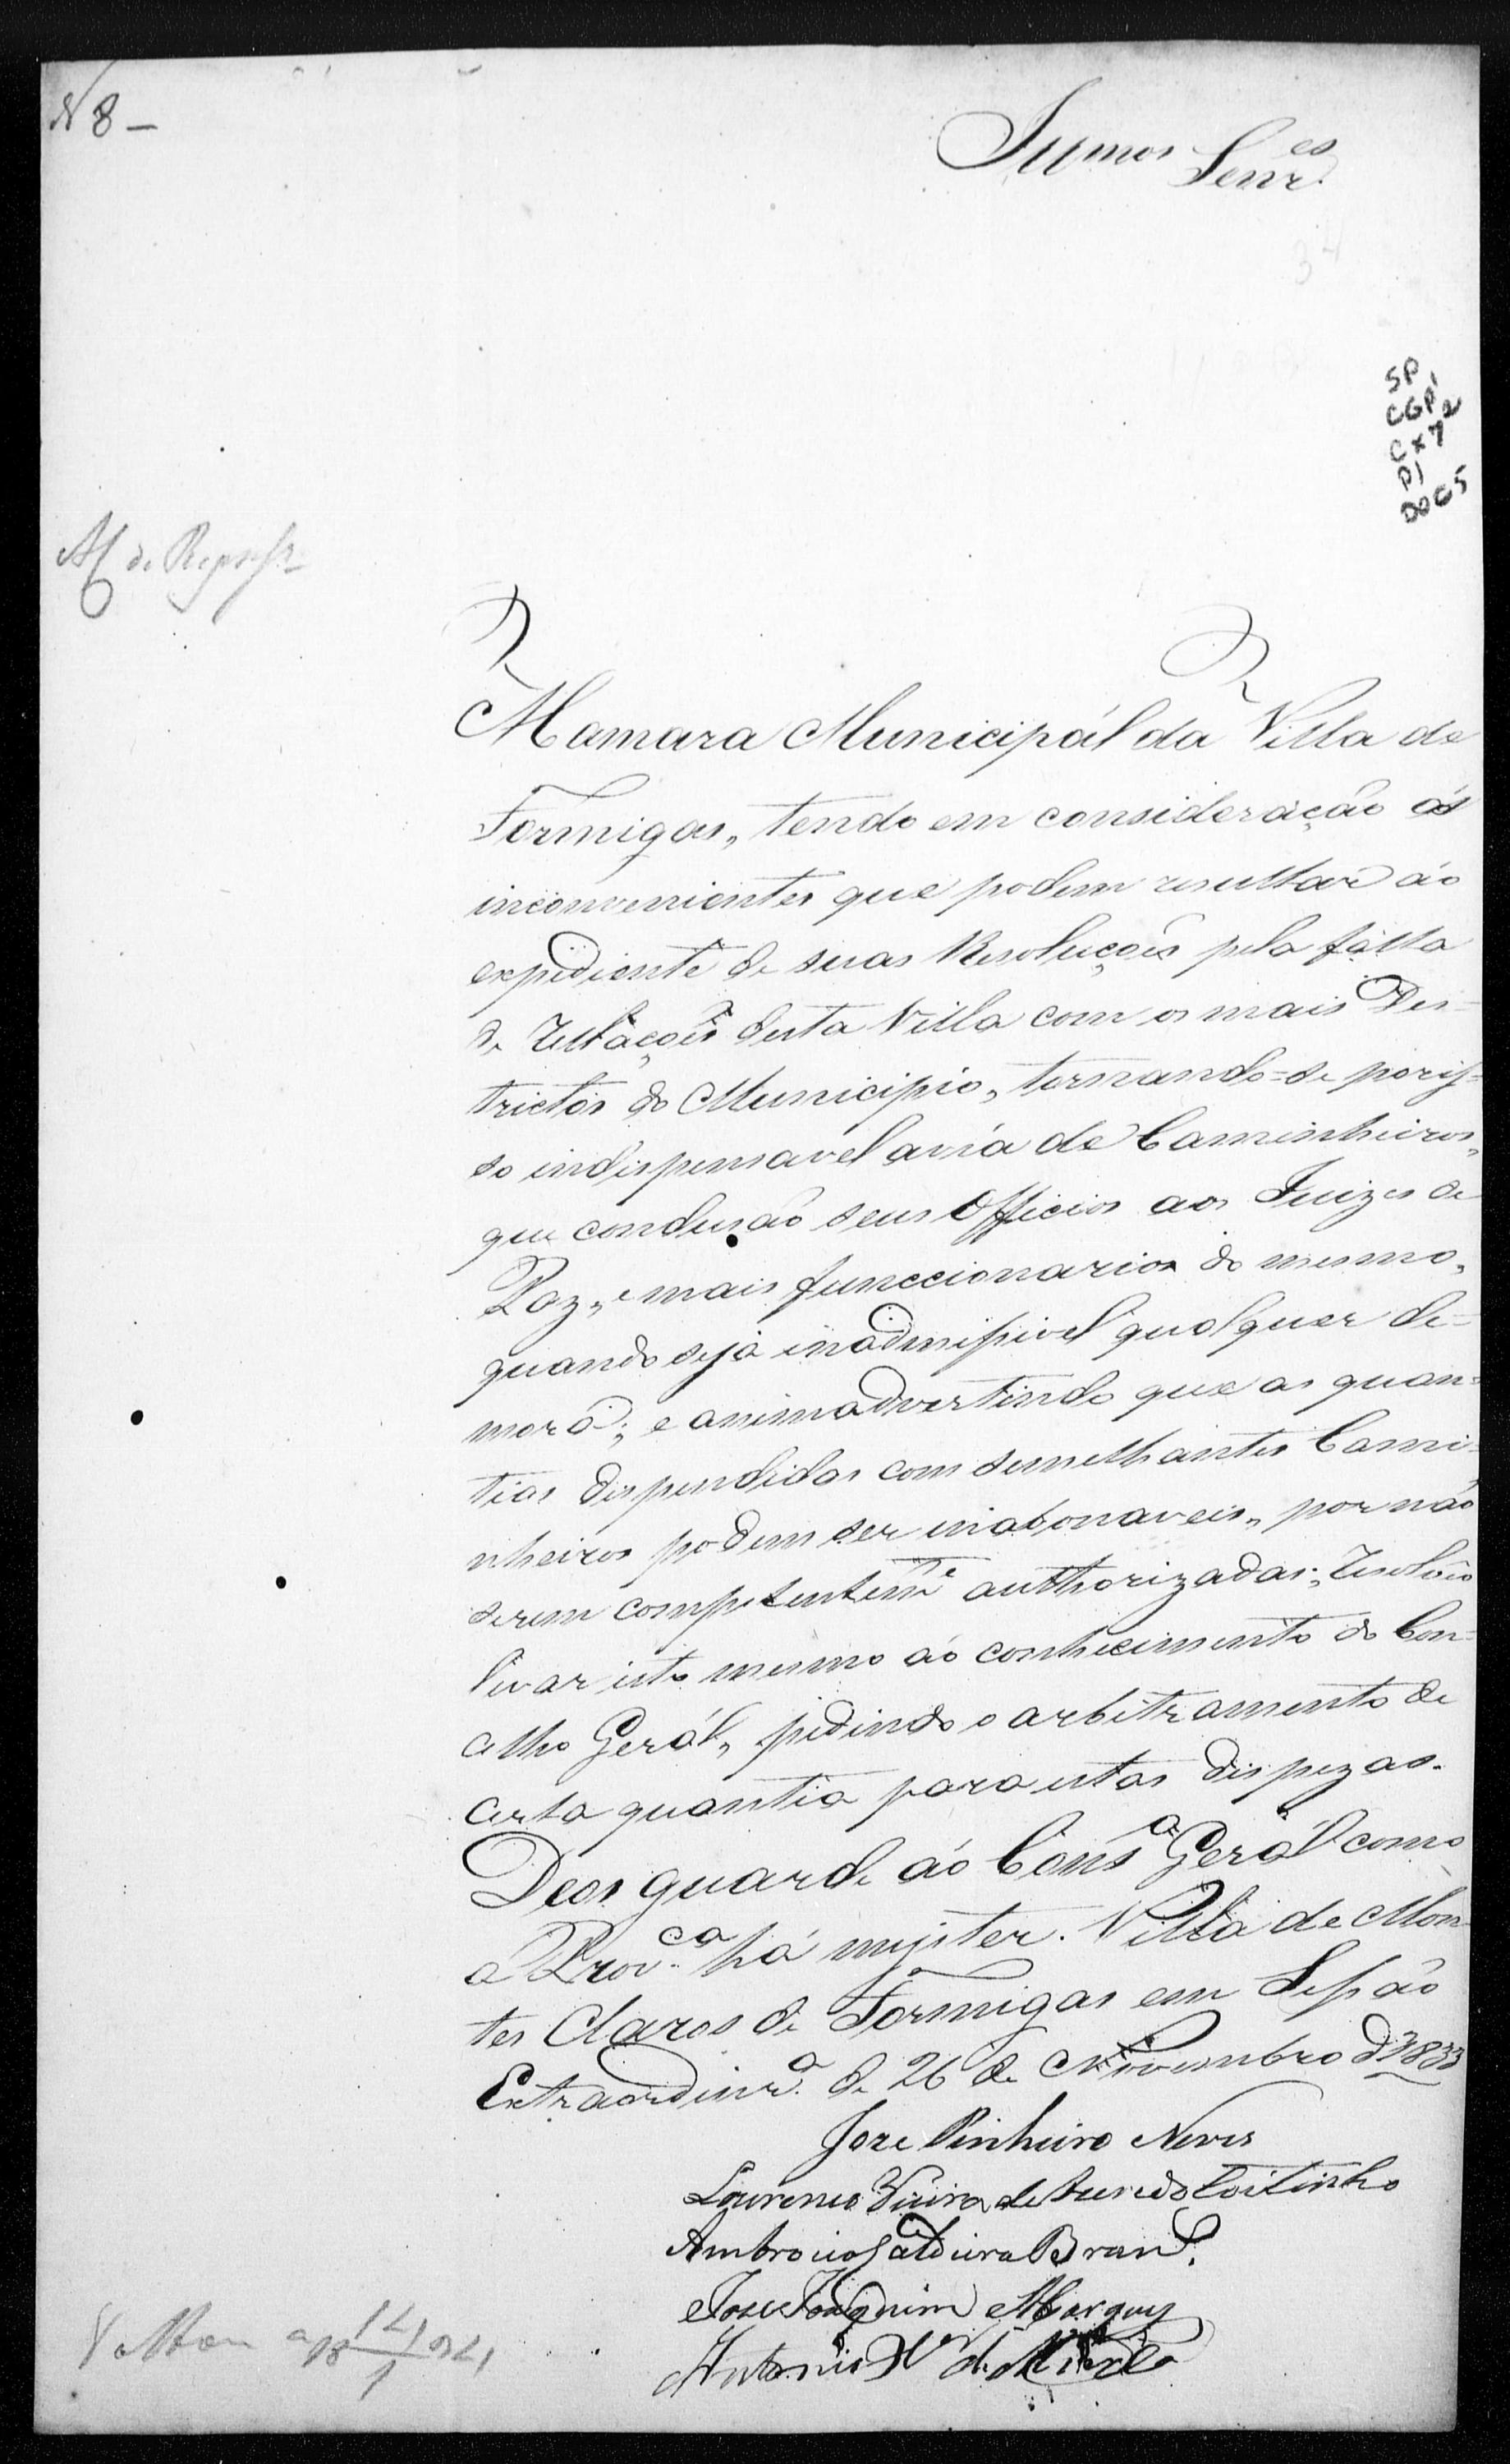 N 8 –
Illmos Senres
34
SP,
CGP1
CX72
P1
DOC5
A Camara Municipál da Villa de
Formigas, tendo em consideração os
inconvenientes que podem resultar áo
expediente de suas Resoluçoẽs pela falta
de rellaçoẽs desta Villa com os mais Des-
trictos do Municipio, tornando=se poris=
so indispensavel avia de Caminheiros,
que condusão seus Officios aos Juizes de
Paz, e mais funccionarios do mesmo,
quando seja inadmissivel qualquer de=
mora; e animadvertindo que as quan=
tias dispendidas com semelhantes Cami=
nheiros podem ser inabonaveis, por não
serem competentemte authorizadas; resolvêo
levar isto mesmo áo conhecimento do Con=
celho Gerál, pedindo o arbitramento de
certa quantia para estas dispezas.
Deos guarde áo Consº Gerál como
a Provca há myster. Villa de Mon-
tes Claros de Formigas em Sessão
Extraordinrª de 26 de Novembro d'1833
Joze Pinheiro Neves
Lourenço Vieira de Azeredo Coitinho
Ambrozio Caldeira Brant.
Joze Joaquim Marques
Antonio Xer de